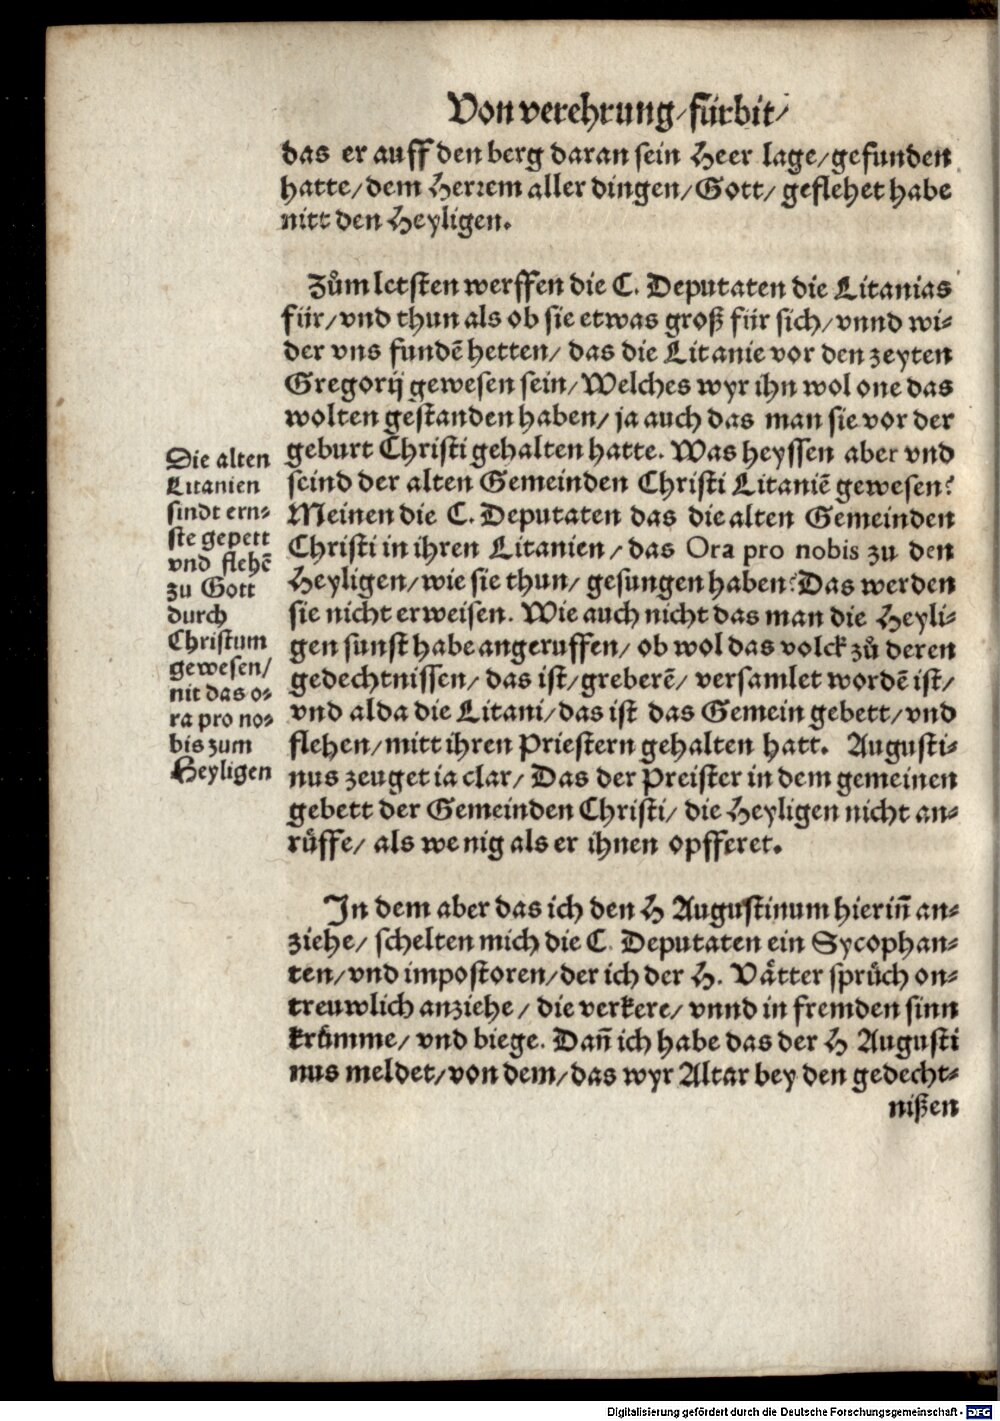 Von verehrung/fürbit/
das er auff den berg daran sein Heer lage/gefunden
hatte/dem Herrem aller dingen/Gott/ geflehet habe
nitt den Heyligen.
Zům letsten werffen die C. Deputaten die Litanias
für/vnd thun als ob sie etwas groß für sich/vnnd wi-
der vns fundē hetten/ das die Litanie vor den zeyten
Gregorij gewesen sein/Welches wyr ihn wol one das
wolten gestanden haben/ ja auch das man sie vor der
geburt Christi gehalten hatte. Was heyssen aber vnd
seind der alten Gemeinden Christi Litaniē gewesen?
Meinen die C. Deputaten das die alten Gemeinden
Christi in ihren Litanien/das Ora pro nobis zu den
Heyligen/wie sie thun/ gesungen haben? Das werden
sie nicht erweisen. Wie auch nicht das man die Heyli-
gen sunst habe angeruffen/ ob wol das volck zů deren
gedechtnissen/ das ist/greberē/ versamlet wordē ist/
vnd alda die Litani/das ist das Gemein gebett/vnd
flehen/mitt ihren Priestern gehalten hatt. Augusti-
nus zeuget ia clar/ Das der Preister in dem gemeinen
gebett der Gemeinden Christi/ die Heyligen nicht an-
růffe/ als wenig als er ihnen opfferet.
Die alten
Litanien
sindt ern-
ste gepett
vnd flehē
zu Gott
durch
Christum
gewesen/
nit das o-
ra pro no-
bis zum
Heyligen
In dem aber das ich den H Augustinum hierin̄ an-
ziehe/ schelten mich die C. Deputaten ein Sycophan-
ten/vnd impostoren/der ich der H. Vätter sprüch on-
treuwlich anziehe/ die verkere/ vnnd in fremden sinn
krümme/ vnd biege. Dan̄ ich habe das der H Augusti
nus meldet/von dem/das wyr Altar bey den gedecht-
nißen
Digitalisierung gefördert durch die Deutsche Forschungsgemeinschaft - DFG